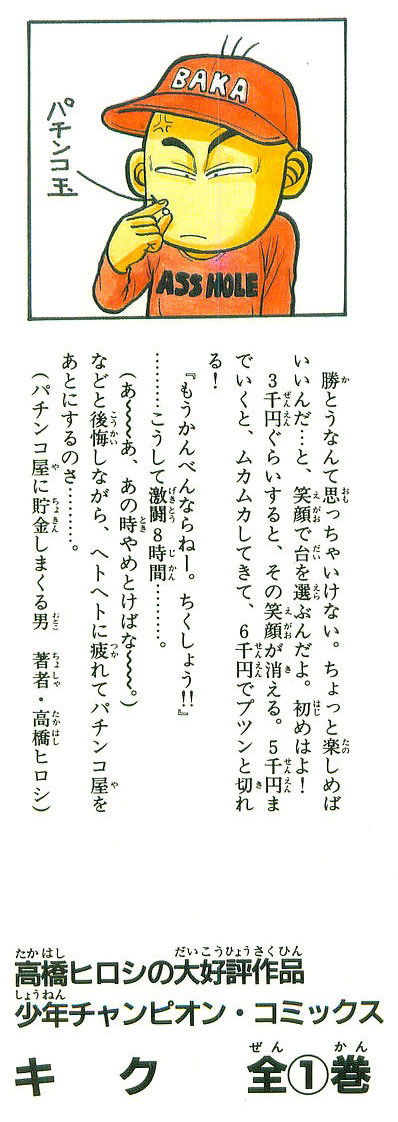 BAKA
パチンコ玉
ASSHOLE
勝とうなんて思っちゃいけない。ちょっと楽しめば
いいんだ…と、笑顔で台を選ぶんだよ。初めはよ!
3千円ぐらいすると、その笑顔が消える。5千円ま
でいくと、ムカムカしてきて、6千円でプツンと切れ
る!
『もうかんべんならねー。ちくしょう!!』
…………こうして激闘8時間…………。
(あ〜〜〜あ、あの時やめとけばな〜〜〜。)
などと後悔しながら、ヘトヘトに疲れてパチンコ屋を
あとにするのさ…………。
(パチンコ屋に貯金しまくる男 著者・高橋ヒロシ)
高橋ヒロシの大好評作品
少年チャンピオン・コミックス
キク 全①巻